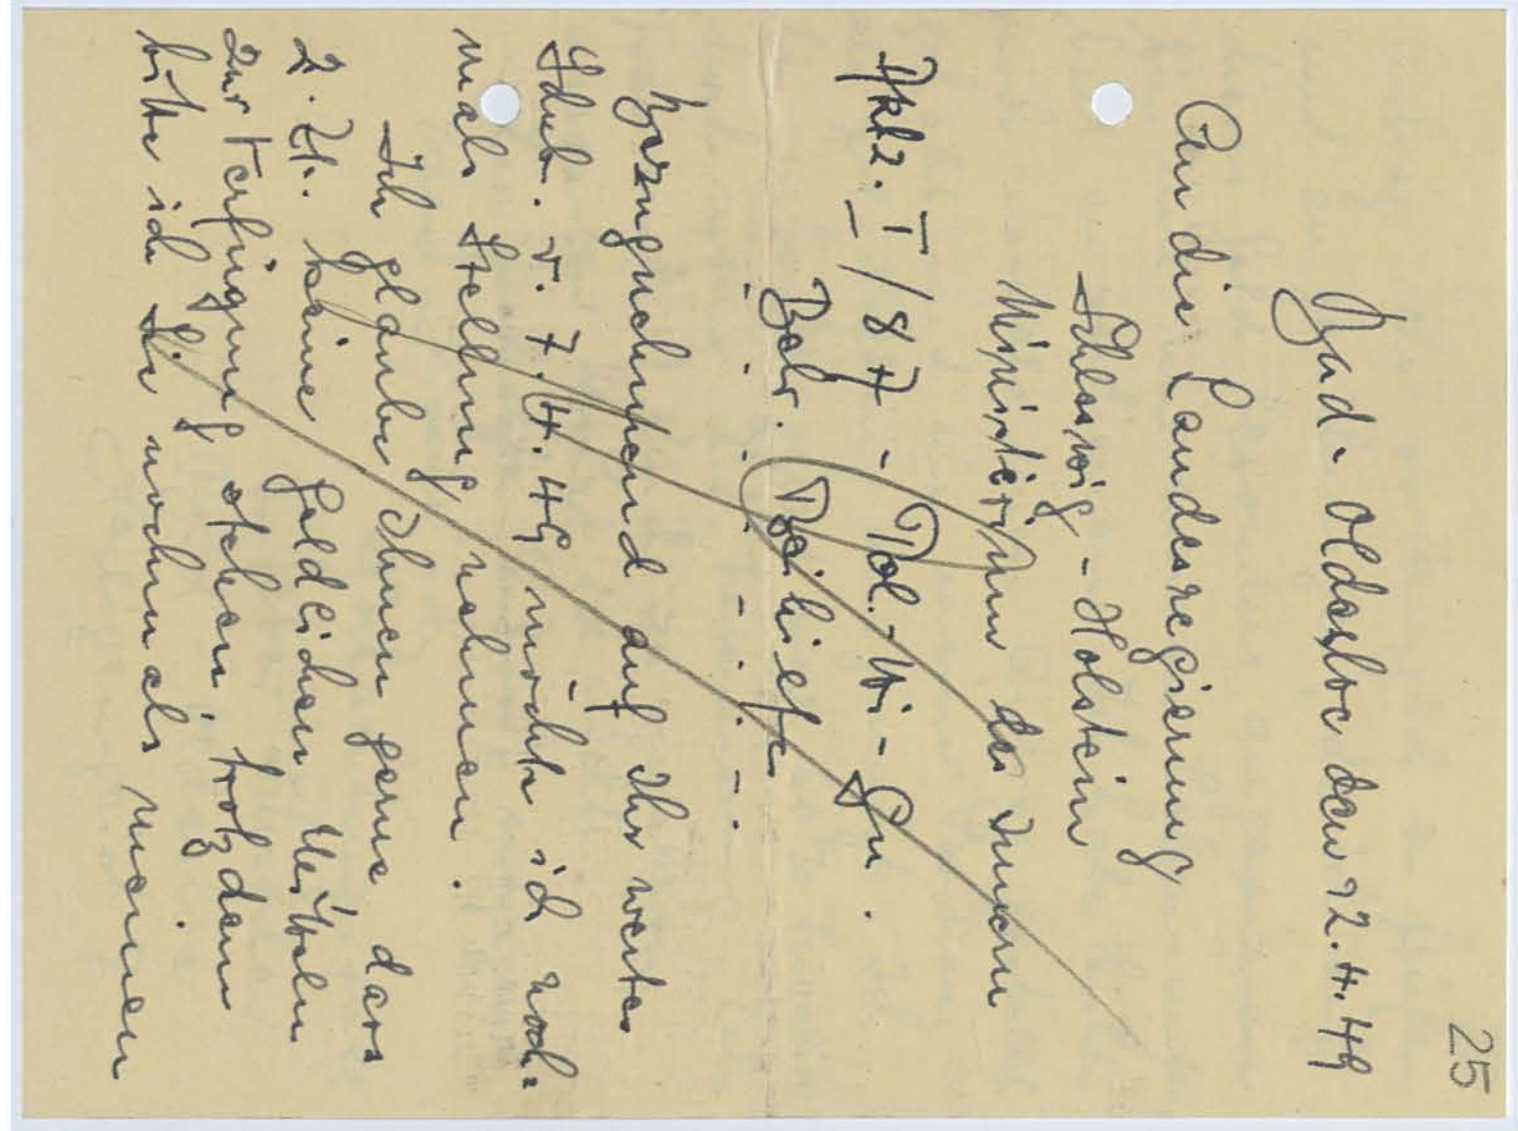 25
Bad-Oldesloe den 22.4.49
An die Landesregierung
Schleswig-Holstein
Ministerium des Innern
Aktz. I/87 - Pol.-Wi-Gu.
Betr. Beihilfe
Bezugnehmend auf Ihr wertes
Schrb. v. 7.4.49 möchte ich noch-
mals Stellung nehmen.
Ich glaube Ihnen gerne dass
z. Zt. keine geldlichen Mitteln
zur Verfügung stehen, trotzdem
bitte ich Sie nochmals meinen